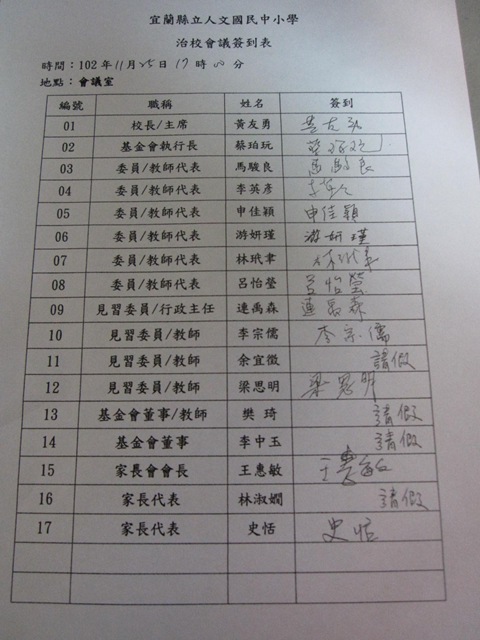 宜蘭縣立人文國民中小學
治校會議簽到表
時間：102年11月25日17時00分
地點：會議室
編號 職稱 姓名 簽到
01 校長/主席 黃友勇
02 基金會執行長 蔡珀玩
03 委員/教師代表 馬駿良 馬駿良
04 委員/教師代表 李英彥
05 委員/教師代表 申佳穎 申佳穎
06 委員/教師代表 游妍瑾 游妍瑾
07 委員/教師代表 林玳聿 林玳聿
08 委員/教師代表 呂怡瑩 呂怡瑩
09 見習委員/行政主任 連禹森 連禹森
10 見習委員/教師 李宗儒 李宗儒
11 見習委員/教師 余宜徵 請假
12 見習委員/教師 梁思明 梁思明
13 基金會董事/教師 樊 琦 請假
14 基金會董事 李中玉 請假
15 家長會會長 王惠敏 王惠敏
16 家長代表 林淑嫻 請假
17 家長代表 史恬 史恬